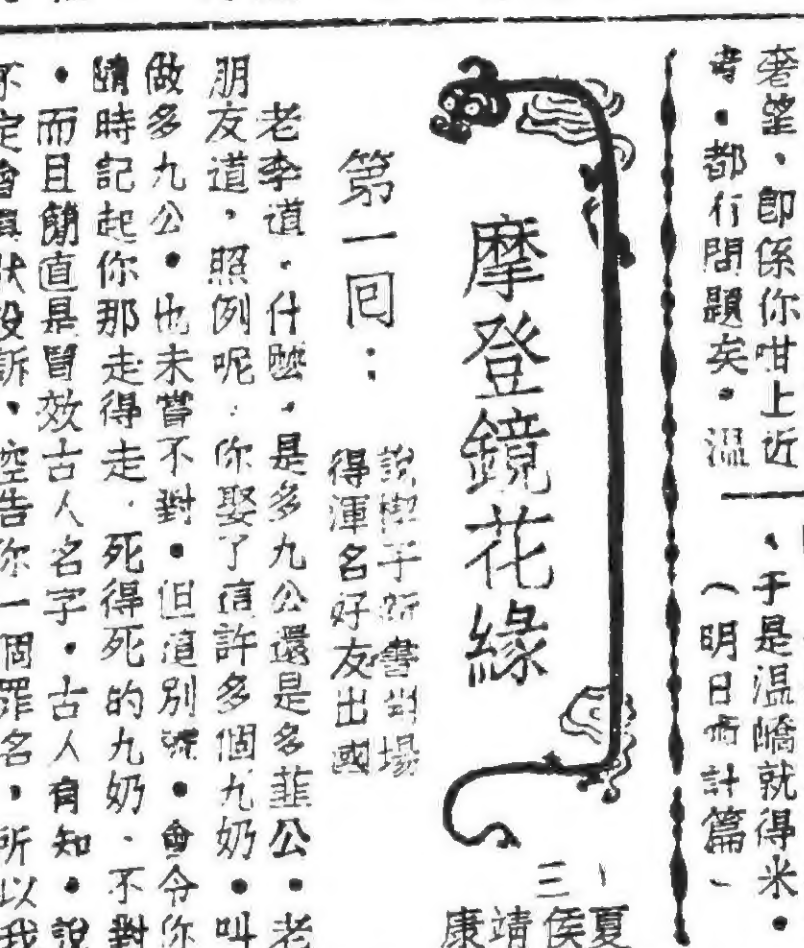 奢望、即係你咁上近
考・都有問題矣・溫
、于是溫嶠就得米・
（明日布計篇）
摩登鏡花緣
三
夏侯靖康
第一回：
說楔子新書出場
得渾名好友出國
老李道・什麼・是多九公還是多韮公・老
朋友道，照例呢・你娶了這許多個九奶・叫
做多九公・也未嘗不對・但這別號・會令你
隨時記起你那走得走・死得死的九奶、不對
・而且簡直是冒效古人名字・古人有知・說
不定會具狀投訴、控告你一個罪名，所以我